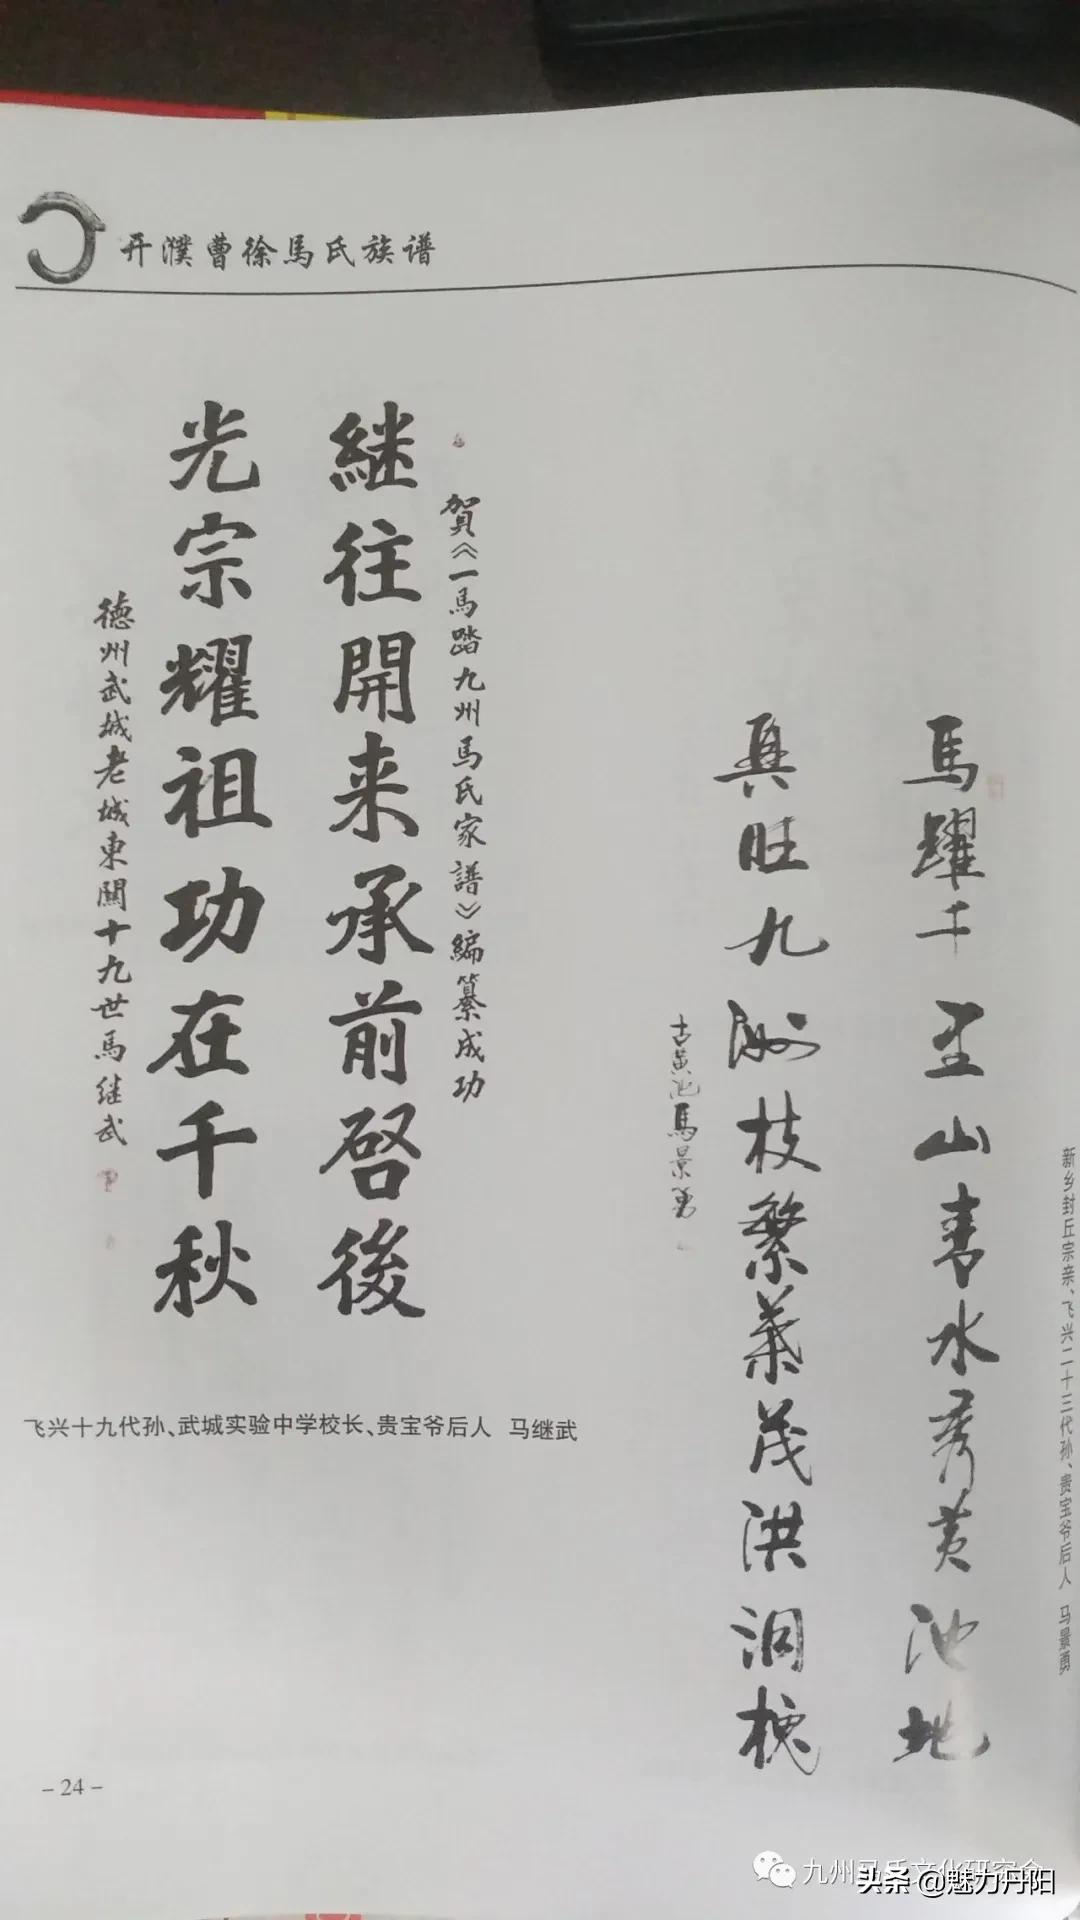 开濮曹徐馬氏族谱
馬躍千里山青水秀黄池地
興旺九洲枝繁葉茂洪洞槐
古黄池馬景勇
新乡封丘宗亲、飞兴二十三代孙、贵宝爷后人 马景勇
賀《一馬踏九州馬氏家譜》编纂成功
継往開来承前啓後
光宗耀祖功在千秋
德州武城老城東關十九世馬继武
飞兴十九代孙、武城实验中学校长、贵宝爷后人 马继武
-24-
九州马氏文化研究会
头条 @魅力丹阳